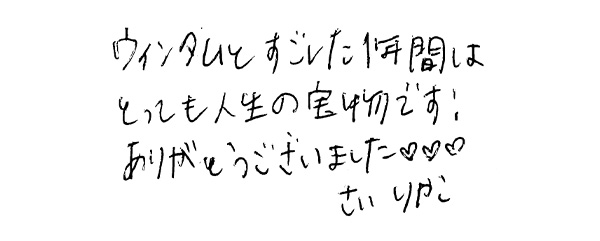 ウィンタムとすごした1年間は
とっても人生の宝物です!
ありがとうございました♡♡♡
さい りやこ